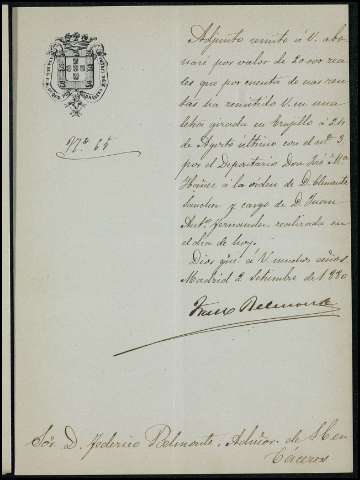 Nº 65
Adjunto remito á V. abo
naré por valor de 20.000 rea
les que por cuenta de sus ren
tas ha remitido V. en una
letra girada en Trujillo á 24
de Agosto último con el nº 3
por el Depositario Don José Mª
Ibañez á la orden de D. Clemente
Sanchez y cargo de D. Juan
Antº Fernandez realizada en
el dia de hoy.
Dios gue á V. muchos años
Madrid 2 Setiembre de 1880
Franco Belmonte
Sor. D. Federico Belmonte, Admor. de S. E. en
Cáceres